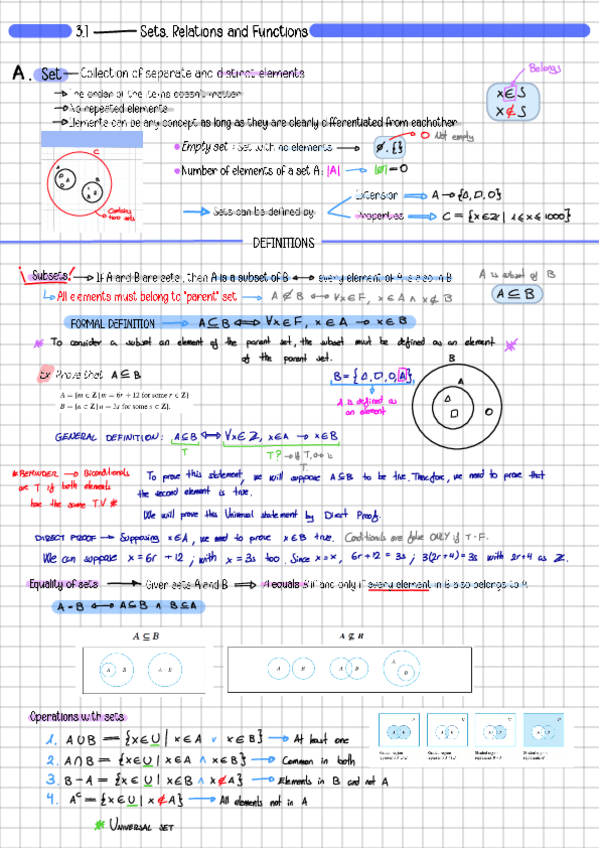 3.1 Sets, Relations and Functions
A. Set — Collection of separate and distinct elements
→ The order of the items doesn't matter
→ No repeated elements
→ Elements can be any concept as long as they are clearly differentiated from eachother
Belongs
x ∈ S
x ∉ S
C
Contains two sets
• Empty set : Set with no elements → ∅ , {}
Not empty
• Number of elements of a set A: |A| → |∅| = 0
→ Sets can be defined by
Extension → A → {△, □, O}
Properties → C = {x ∈ Z | 1 ≤ x ≤ 1000}
DEFINITIONS
¡Subsets! → If A and B are sets, then A is a subset of B ↔ every element of A is also in B
A is subset of B
A ⊆ B
↳ All elements must belong to "parent" set → A ⊄ B ↔ ∀x ∈ F, x ∈ A ∧ x ∉ B
FORMAL DEFINITION → A ⊆ B ⟺ ∀x ∈ F, x ∈ A → x ∈ B
* To consider a subset an element of the parent set, the subset must be defined as an element *
of the parent set.
Ex Prove that A ⊆ B
A = {m ∈ Z | m = 6r + 12 for some r ∈ Z}
B = {n ∈ Z | n = 3s for some s ∈ Z}.
B = {△, □, O, A}
A is defined as
an element
B
A
GENERAL DEFINITION: A ⊆ B ⟷ ∀x ∈ Z, x ∈ A → x ∈ B
T
T? → if T,
T
* REMINDER → Biconditionals
are T if both elements
have the same T.V *
To prove this statement, we will suppose A ⊆ B to be true. Therefore, we need to prove that
the second element is true.
We will prove this Universal statement by Direct Proof.
DIRECT PROOF → Supposing x ∈ A, we need to prove x ∈ B true. Conditionals are false ONLY if T-F.
We can suppose x = 6r + 12 ; with x = 3s too. Since x = x, 6r + 12 = 3s ; 3(2r + 4) = 3s with 2r + 4 as Z.
Equality of sets → Given sets A and B ⟹ A equals B if and only if every element in B also belongs to A
A = B ⟷ A ⊆ B ∧ B ⊆ A
A ⊆ B
A ⊈ B
A B
A = B
A B
A B
A
B
Operations with sets
1. A ∪ B = {x ∈ U | x ∈ A ∨ x ∈ B} → At least one
2. A ∩ B = {x ∈ U | x ∈ A ∧ x ∈ B} → Common in both
3. B − A = {x ∈ U | x ∈ B ∧ x ∉ A} → Elements in B and not A
4. Aᶜ = {x ∈ U | x ∉ A} → All elements not in A
* UNIVERSAL SET